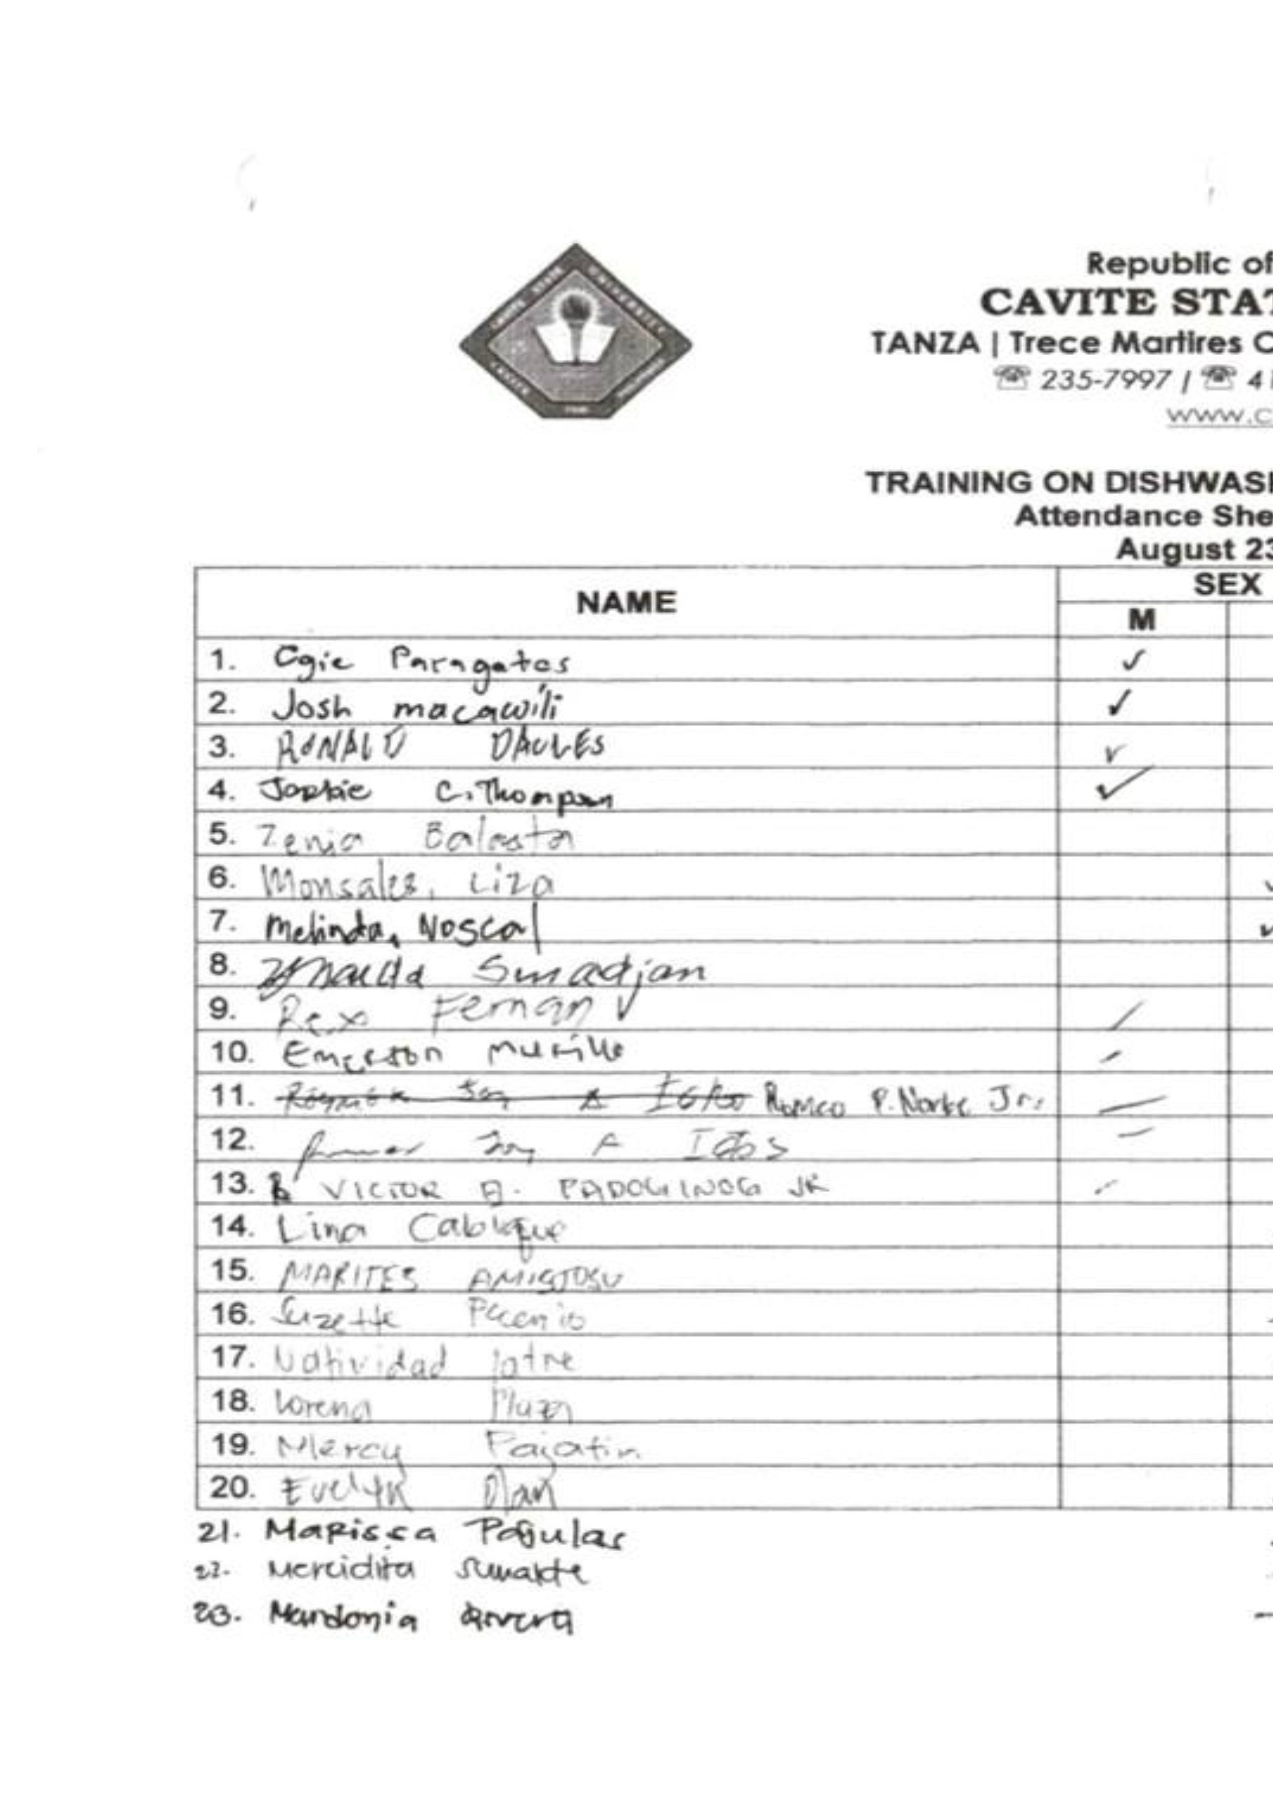 Republic of
CAVITE STAT
TANZA | Trece Martires C
☏ 235-7997 / ☏ 4
www.c
TRAINING ON DISHWASH
Attendance She
August 23
NAME
SEX
M
1. Ogie Paragatos
2. Josh macawili
3. RONALD DAULES
4. C. Thompson
5. Zenia Balasta
6. Monsales, Liza
7. Melinda, Noscal
8. Sumadjan
9. Rex Fernan
10. Emerson Murillo
11. Romeo P. Norte Jr.
12.
13. VICTOR A. PADOGINOG JR
14. Lina
15. MARITES AMISTOSO
16. Suzette
17. Natividad Jatre
18. Lorena Plaza
19. Mercy Pajatin
20. Evelyn Olan
21. Marissa Pagulas
22. Mercidita
23. Mardonia